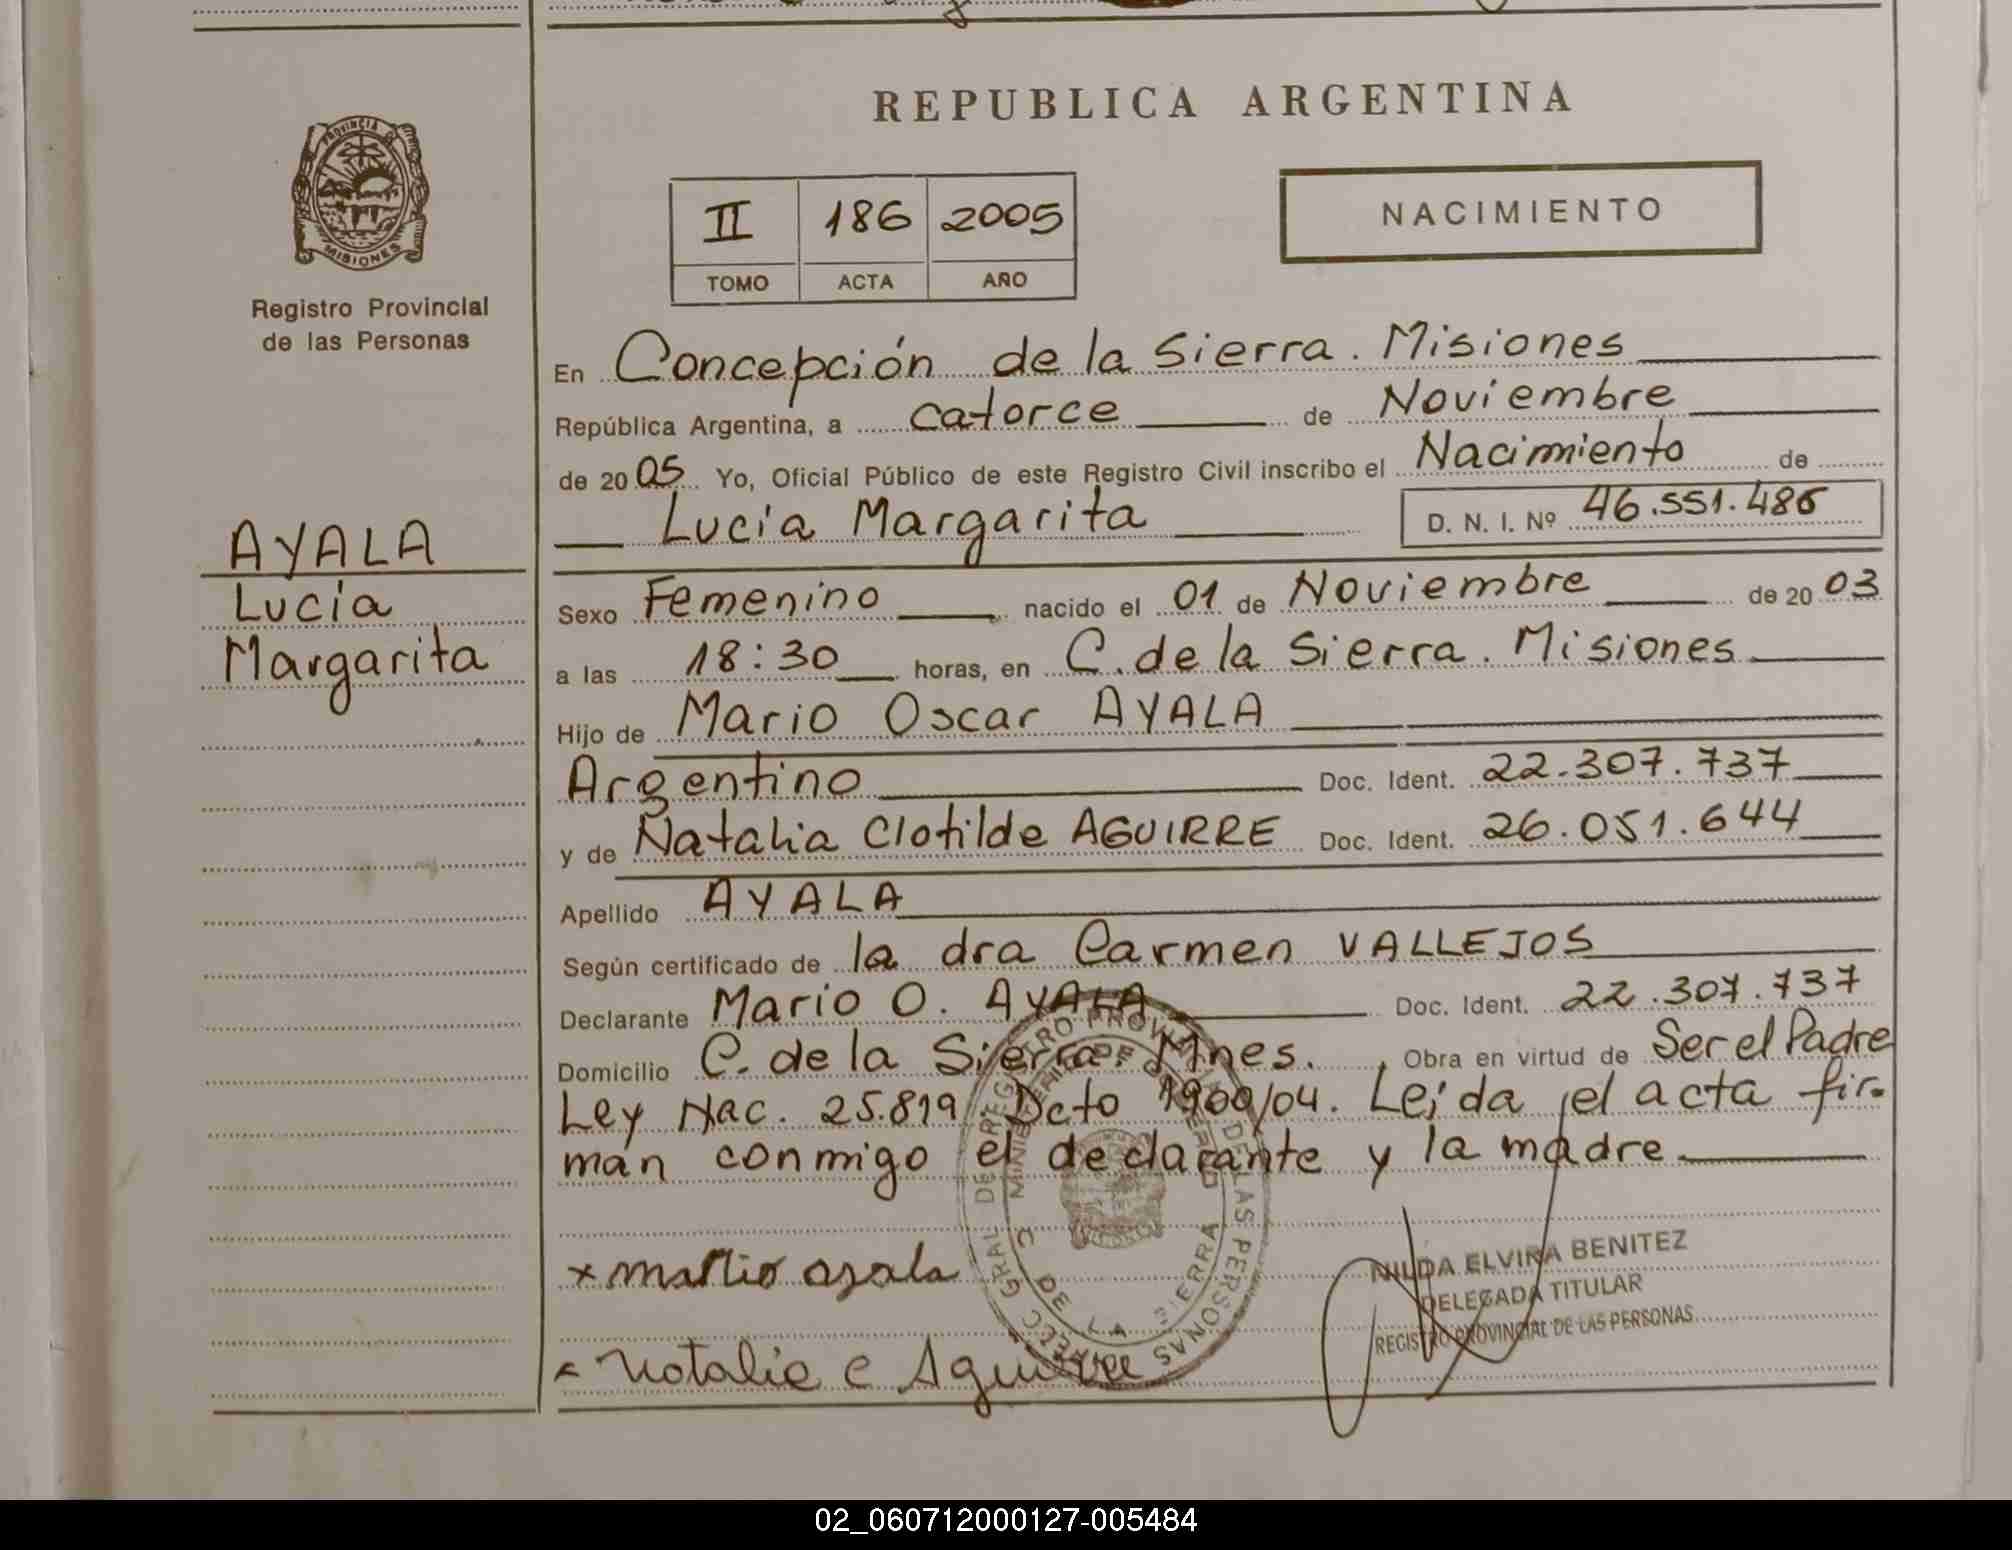 REPUBLICA ARGENTINA
PROVINCIA DE MISIONES
Registro Provincial
de las Personas
II 186 2005
TOMO ACTA AÑO
NACIMIENTO
En Concepción de la Sierra. Misiones
República Argentina, a catorce de Noviembre
de 2005 Yo, Oficial Público de este Registro Civil inscribo el Nacimiento de
Lucía Margarita D. N. I. Nº 46.551.486
AYALA
Lucía
Margarita
Sexo Femenino nacido el 01 de Noviembre de 2003
a las 18:30 horas, en C. de la Sierra. Misiones
Hijo de Mario Oscar AYALA
Argentino Doc. Ident. 22.307.737
y de Natalia Clotilde AGUIRRE Doc. Ident. 26.051.644
Apellido AYALA
Según certificado de la dra Carmen VALLEJOS
Declarante Mario O. AYALA Doc. Ident. 22.307.737
Domicilio C. de la Sierra. Mnes. Obra en virtud de Ser el Padre
Ley Nac. 25.819. Dcto 1900/04. Leída el acta fir-
man conmigo el declarante y la madre
x mario ayala
Natalia C Aguirre
NILDA ELVIRA BENITEZ
DELEGADA TITULAR
REGISTRO PROVINCIAL DE LAS PERSONAS
02_060712000127-005484